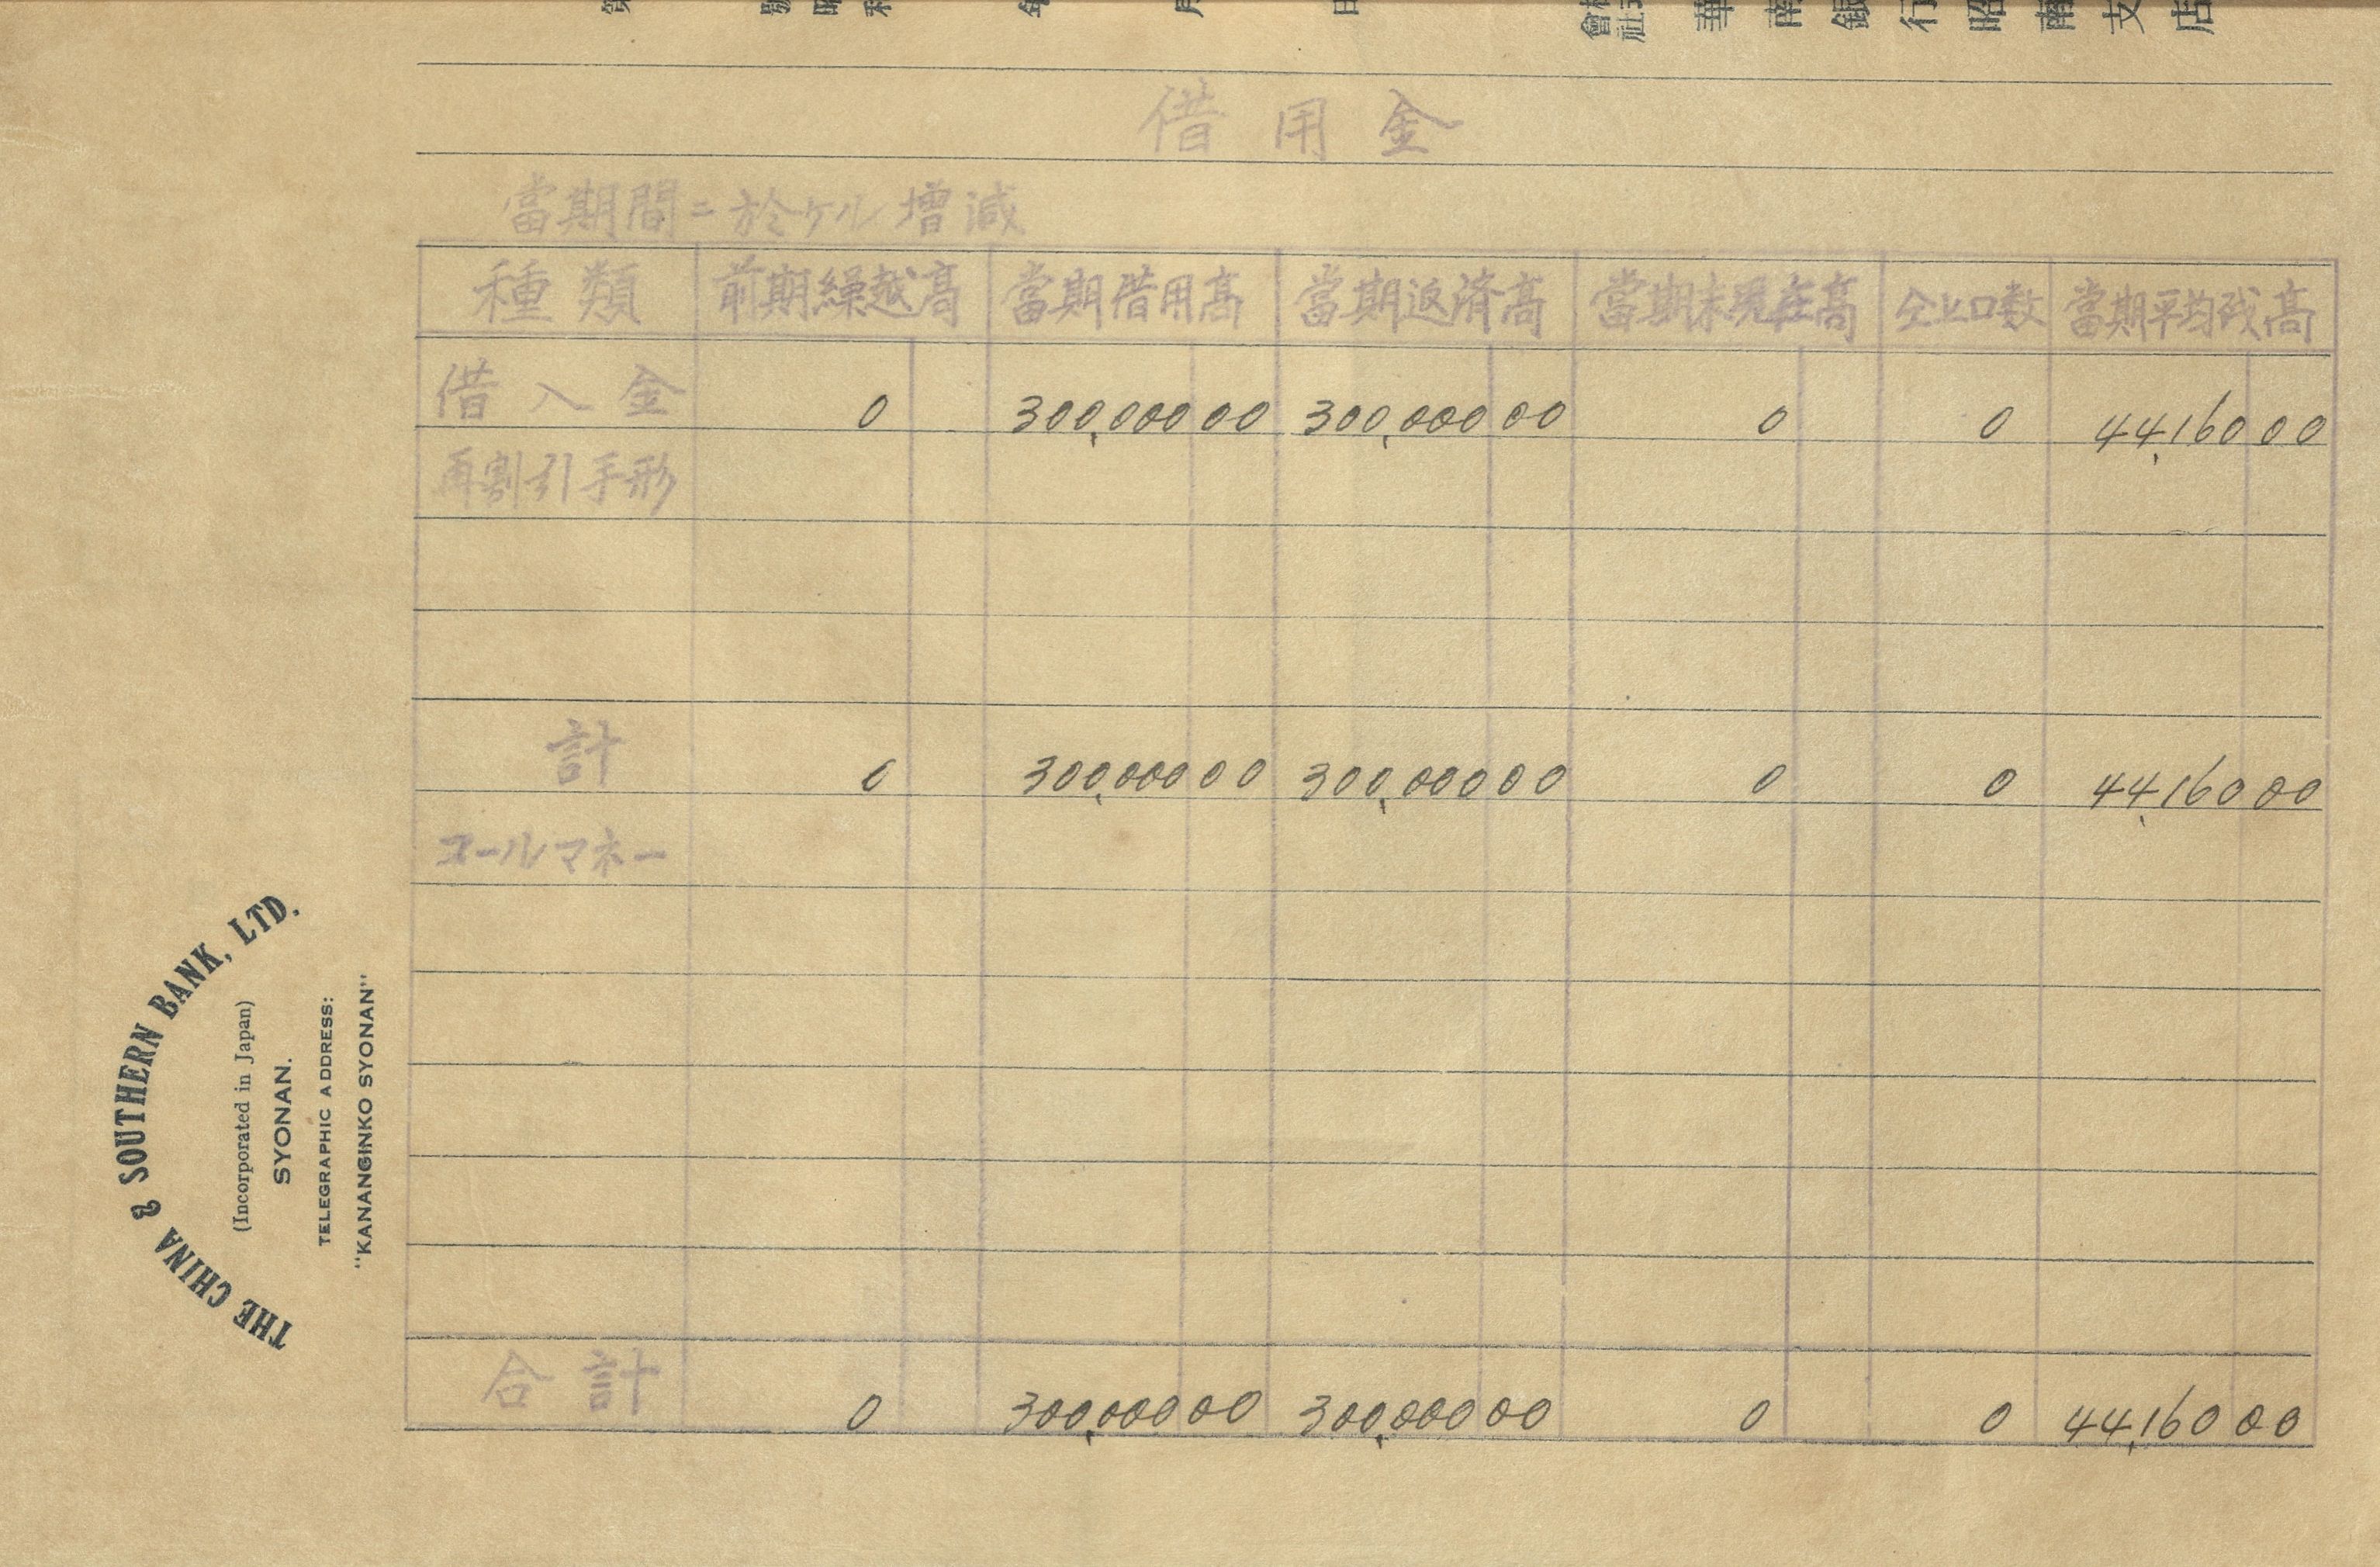 第 號 昭和 年 月 日 株式會社 華南銀行昭南支店
借用金
當期間ニ於ケル増減
種類 前期繰越高 當期借用高 當期返済高 當期末現在高 仝上口数 當期平均残高
借入金 0 300,000 00 300,000 00 0 0 44,160 00
再割引手形
計 0 300,000 00 300,000 00 0 0 44,160 00
コールマネー
合計 0 300,000 00 300,000 00 0 0 44,160 00
THE CHINA & SOUTHERN BANK, LTD.
(Incorporated in Japan)
SYONAN.
TELEGRAPHIC ADDRESS:
"KANANGINKO SYONAN"